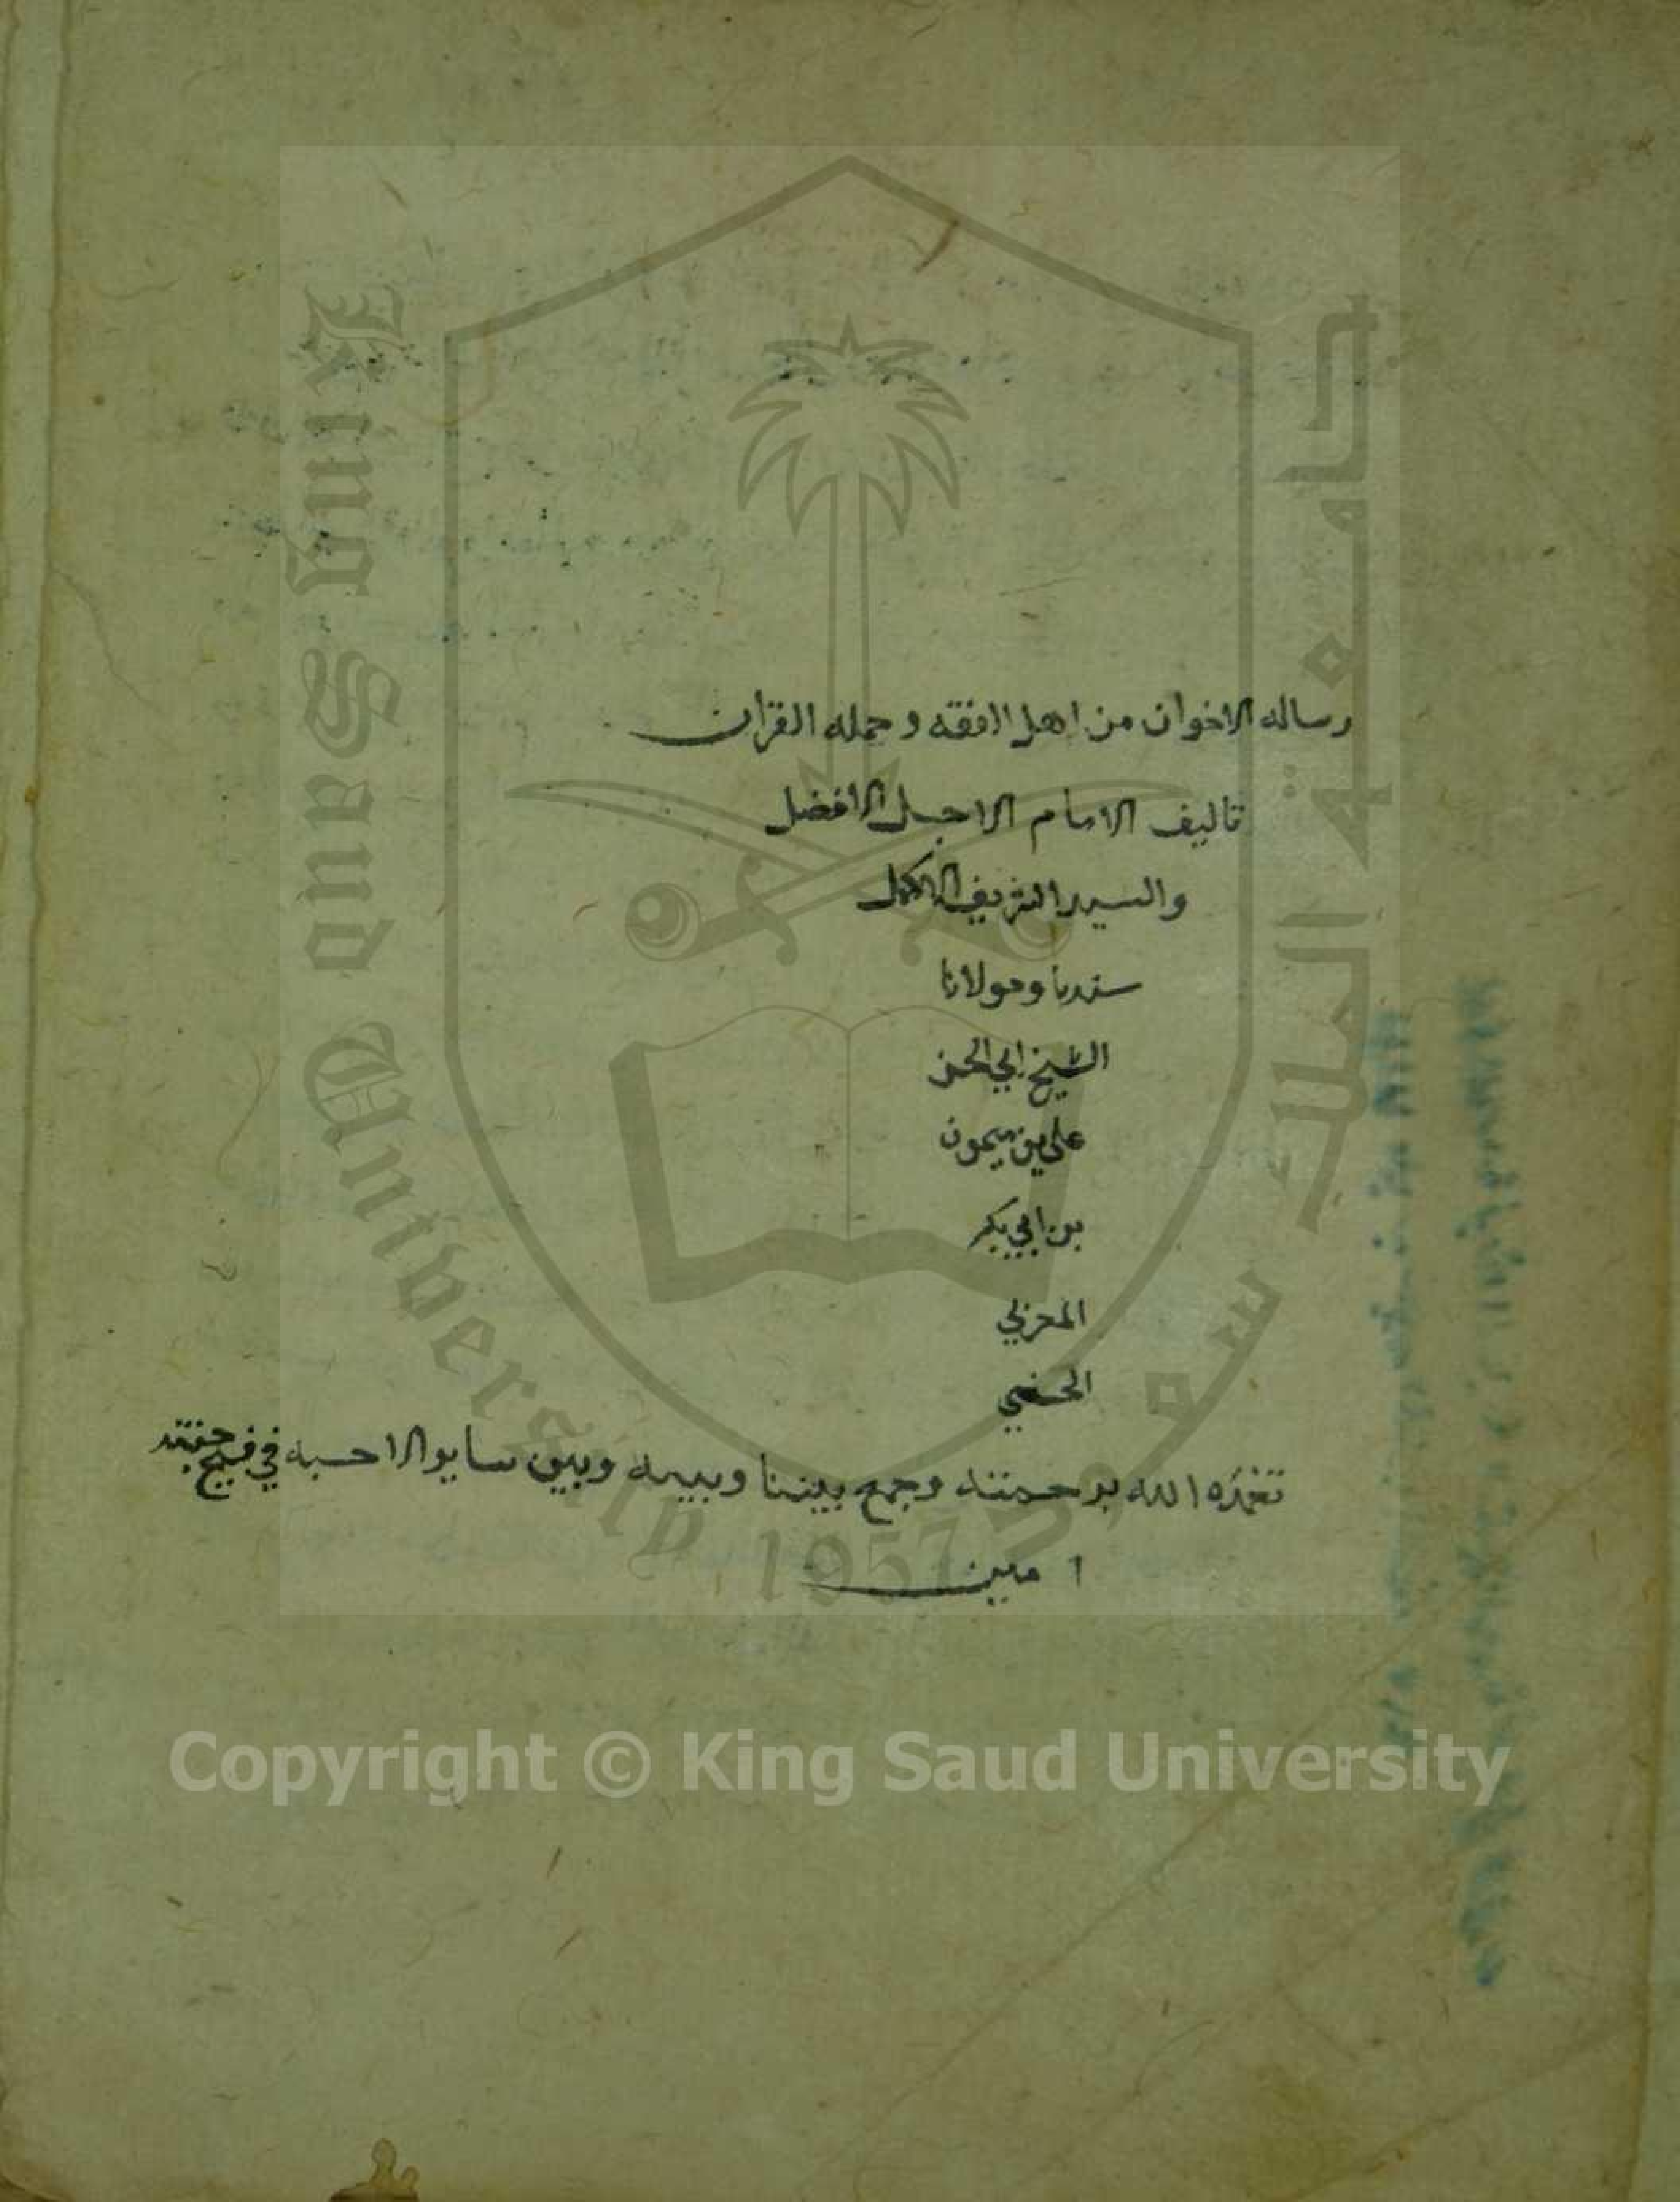 رساله الاخوان من اهل الفقه وحمله القران
تاليف الامام الاجل الافضل
والسيد الشريف الاكمل
سندنا ومولانا
الشيخ ابي الحسن
علي بن ميمون
بن ابي بكر
المغربي
الحسني
تغمده الله برحمته وجمع بيننا وبينه وبين ساير الاحبه في فسيح جنته
امين
King Saud University 1957
جامعة الملك سعود
Copyright © King Saud University